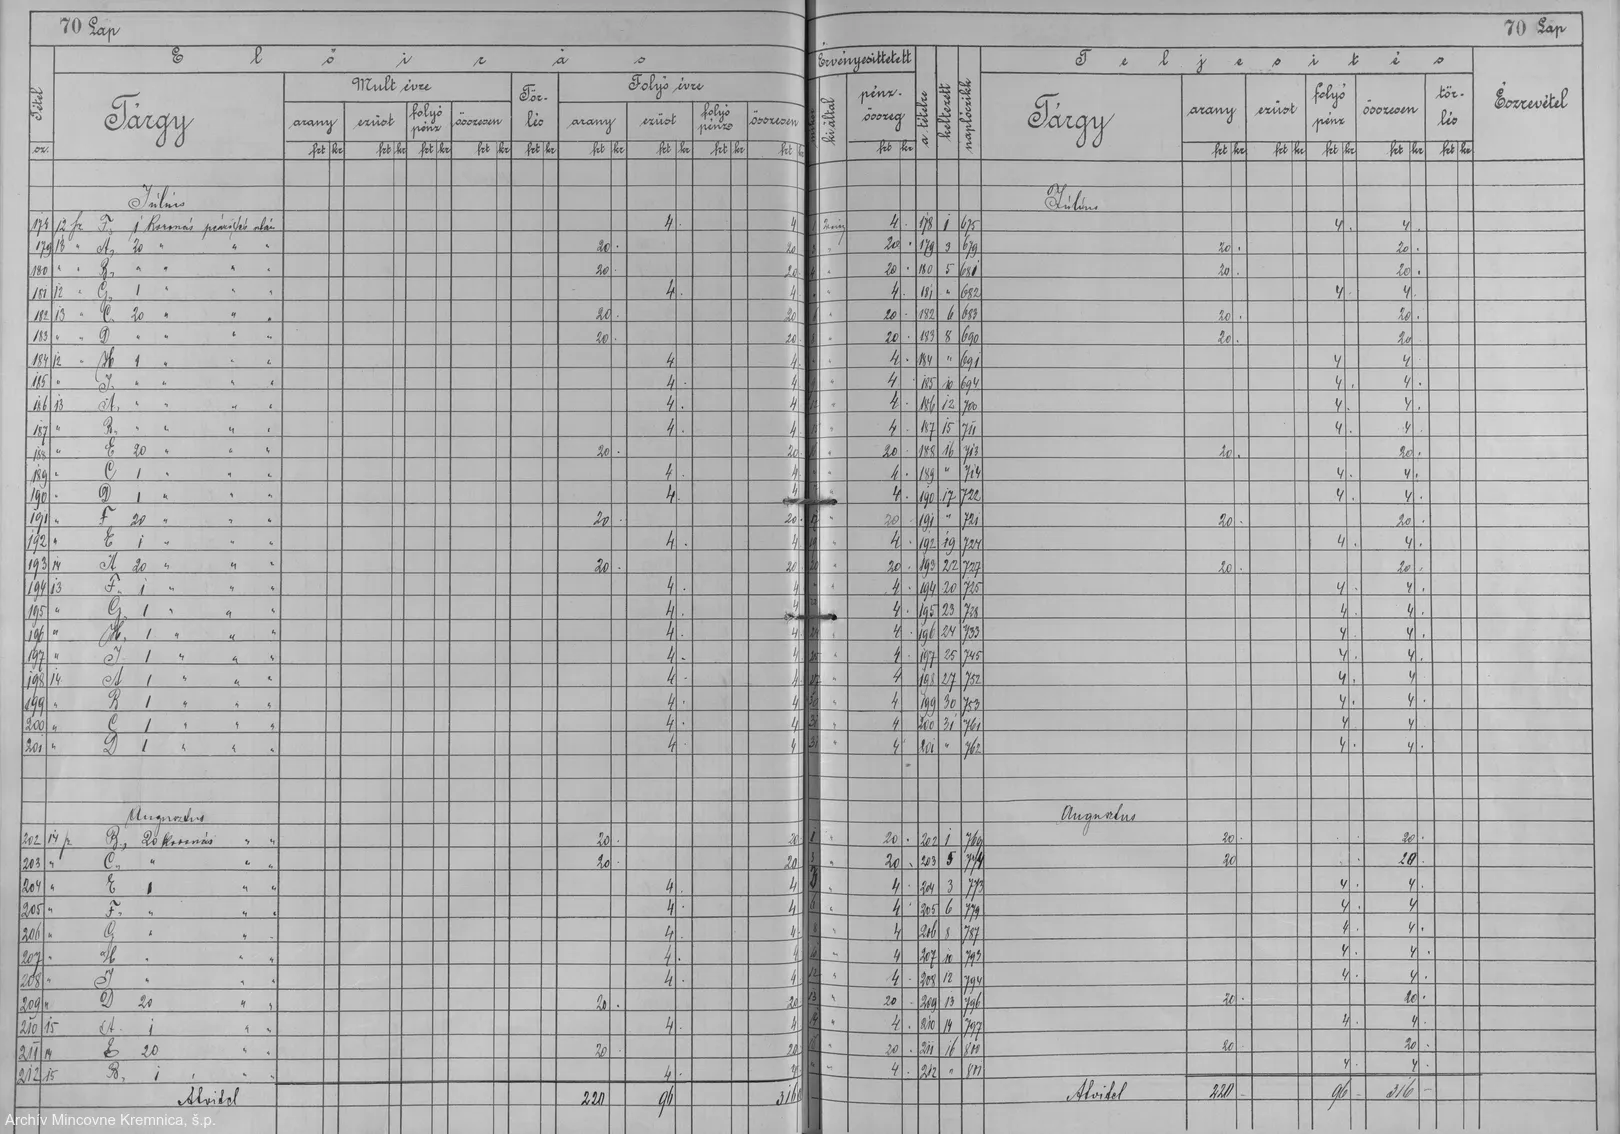 70 Lap
70 Lap
Előirás
Érvényesittetett
Teljesités
Tétel sz.
Tárgy
Mult évre
Tör-lés
Folyó évre
kiáltal
pénz-összeg
a tételre
keltezett
naplócikk
Tárgy
arany
ezüst
folyó pénz
összesen
tör-lés
Észrevétel
arany
ezüst
folyó pénz
összesen
arany
ezüst
folyó pénz
összesen
frt kr frt kr frt kr frt kr frt kr frt kr frt kr frt kr frt kr frt kr frt kr frt kr frt kr frt kr
Július
Július
12 F, 1 koronás 4. 4 4. 178 1 675 4. 4.
179 13 " A, 20 " " " 20. 20 20. 179 3 679 20. 20.
180 " " B, " " " " 20. 20 20. 180 5 681 20. 20.
181 12 " G, 1 " " " 4. 4. 4. 181 " 682 4. 4.
182 13 " C, 20 " " " 20. 20 20. 182 6 683 20. 20.
183 " " D " " " " 20. 20 20. 183 8 690 20. 20
184 12 " H 1 " " " 4 4. 4. 184 " 691 4 4
185 " J, " " " " 4. 4 4. 185 10 694 4. 4.
186 13 A, " " " " 4. 4 4. 186 12 700 4. 4.
187 " B, " " " " 4. 4 4. 187 15 711 4. 4.
188 " E 20 " " " 20. 20. 20. 188 16 713 20. 20.
189 " C, 1 " " " 4. 4 4. 189 " 714 4. 4.
190 " D 1 " " " 4. 4 4. 190 17 722 4. 4.
191 " F 20 " " " 20. 20. 20 191 " 721 20. 20.
192 " E 1 " " " 4. 4 4. 192 19 724 4. 4.
193 14 A 20 " " " 20. 20 20. 193 22 727 20. 20.
194 13 F, 1 " " " 4. 4 4. 194 20 725 4. 4.
195 " G, 1 " " " 4. 4 4. 195 23 728 4. 4.
196 " H, 1 " " " 4. 4 4. 196 24 733 4. 4.
197 " J, 1 " " " 4. 4 4. 197 25 745 4. 4.
198 14 A 1 " " " 4. 4 4 198 27 752 4. 4
199 " B 1 " " " 4. 4 4 199 30 753 4. 4.
200 " C 1 " " " 4. 4 4 200 31 761 4 4.
201 " D 1 " " " 4. 4 4 201 " 762 4. 4.
Augustus
Augustus
202 14 B, 20 koronás " " 20. 20 20. 202 1 769 20. 20.
203 " C, " " " 20. 20 20. 203 5 774 20 20.
204 " E 1 " " 4. 4 4. 204 3 773 4. 4.
205 " F, " " " 4. 4 4. 205 6 779 4. 4
206 " G " " " 4. 4 4 206 8 787 4. 4.
207 " H " " " 4. 4 4 207 10 793 4. 4.
208 " J " " " 4. 4 4. 208 12 794 4. 4.
209 " D 20 " " 20. 20 20. 209 13 796 20. 20.
210 15 A 1 " " 4. 4 4. 210 14 797 4. 4.
211 14 E 20 " " 20. 20 20. 211 16 20 20.
212 15 B, 1 " " " 4. 4. 212 " 4. 4.
Átvitel 220 96 316 Átvitel 220 96 316
Archív Mincovne Kremnica, š.p.